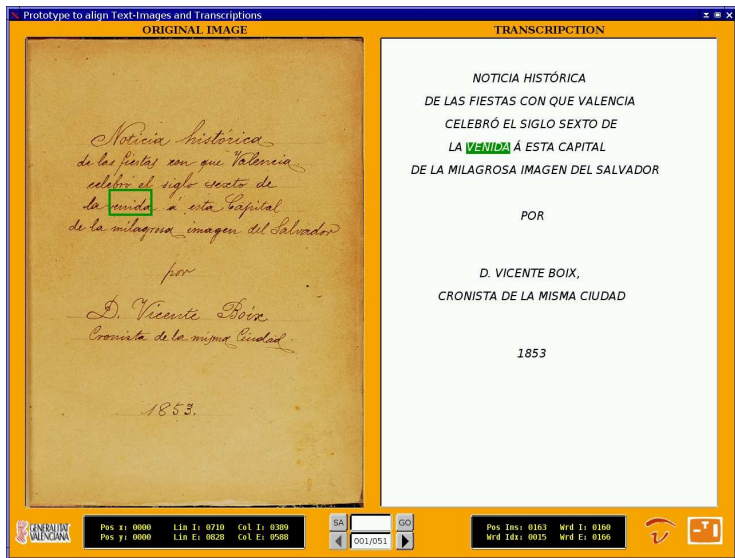 Prototype to align Text-Images and Transcriptions
ORIGINAL IMAGE
Noticia histórica
de las fiestas con que Valencia
celebró el siglo sexto de
la venida á esta Capital
de la milagrosa imagen del Salvador
por
D. Vicente Boix
Cronista de la misma Ciudad.
1853.
TRANSCRIPCTION
NOTICIA HISTÓRICA
DE LAS FIESTAS CON QUE VALENCIA
CELEBRÓ EL SIGLO SEXTO DE
LA VENIDA Á ESTA CAPITAL
DE LA MILAGROSA IMAGEN DEL SALVADOR
POR
D. VICENTE BOIX,
CRONISTA DE LA MISMA CIUDAD
1853
GENERALITAT
VALENCIANA
Pos x: 0000 Lin I: 0710 Col I: 0389
Pos y: 0000 Lin E: 0828 Col E: 0588
SA GO
001/051
Pos Ins: 0163 Wrd I: 0160
Wrd Idx: 0015 Wrd E: 0166
iTI